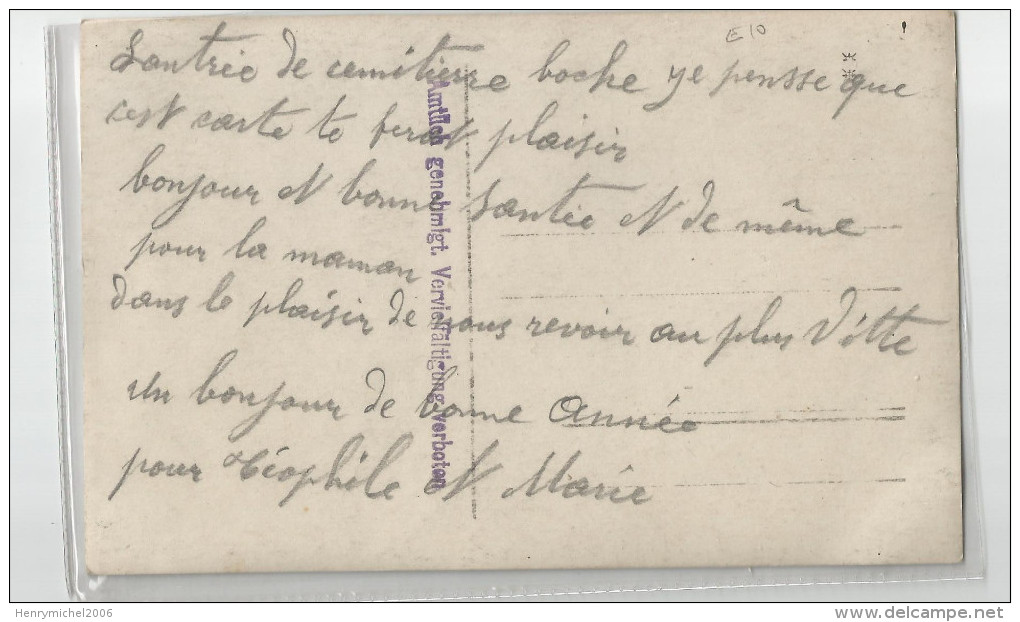 E10
!
Lantrée de cemitierre boche ye pensse que
cest carte te ferat plaisir
bonjour et bonne Santée et de même
pour la maman
dans le plaisir de vous revoir au plus Vitte
un bonjour de bonne Année
pour téophile et Marie
Amtlich genehmigt. Vervielfältigung verboten
Henrymichel2006
www.delcampe.net